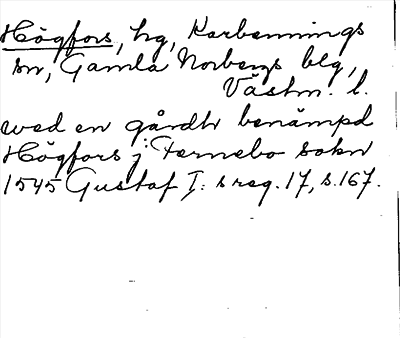 Högfors, hg, Karbennings
sn, Gamla Norbergs blg,
Västm. l.
wed en gårdh benämpd
Högfors j Fernebo sokn
1545 Gustaf I: s reg. 17, s. 167.